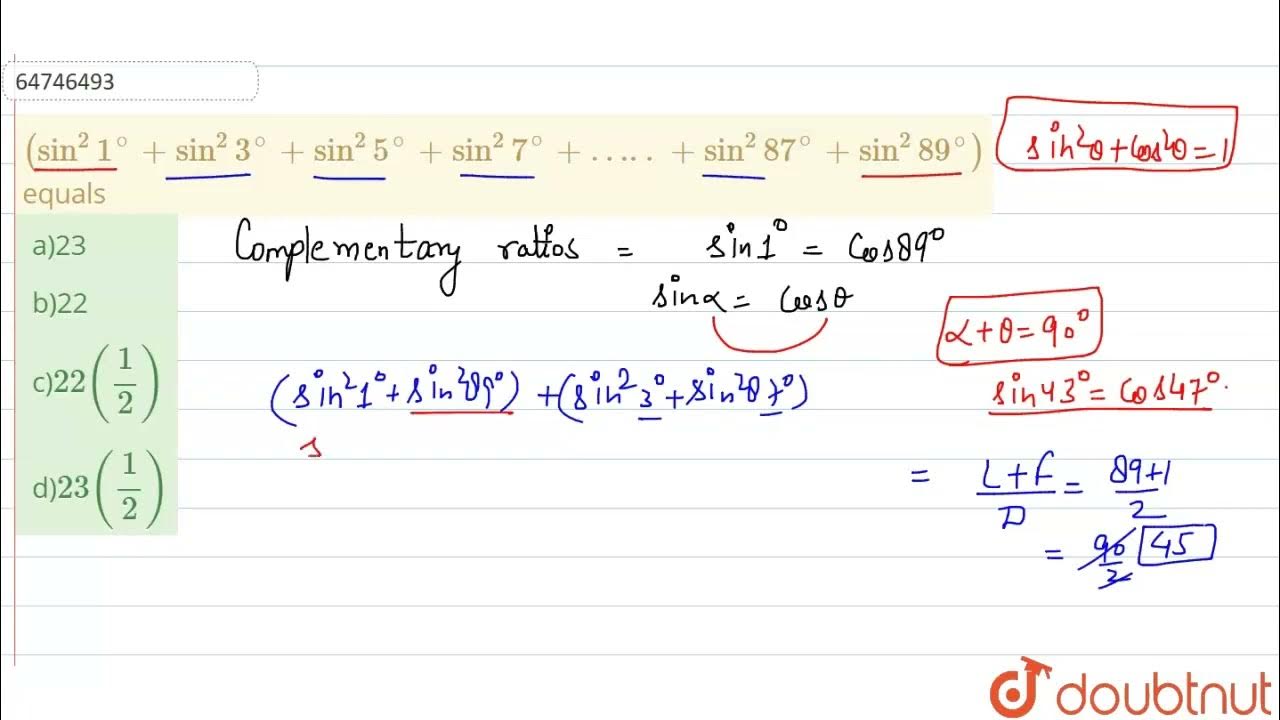 64746493
(sin² 1° + sin² 3° + sin² 5° + sin² 7° + ..... + sin² 87° + sin² 89°)
equals
sin²θ + cos²θ = 1
a)23
b)22
c)22(1/2)
d)23(1/2)
Complementary ratios = sin1° = Cos89°
sinα = Cosθ
α + θ = 90°
(sin²1° + sin²89°) + (sin²3° + sin²87°)
sin43° = Cos47°.
s
= L+F/D = 89+1/2
= 90/2 45
doubtnut